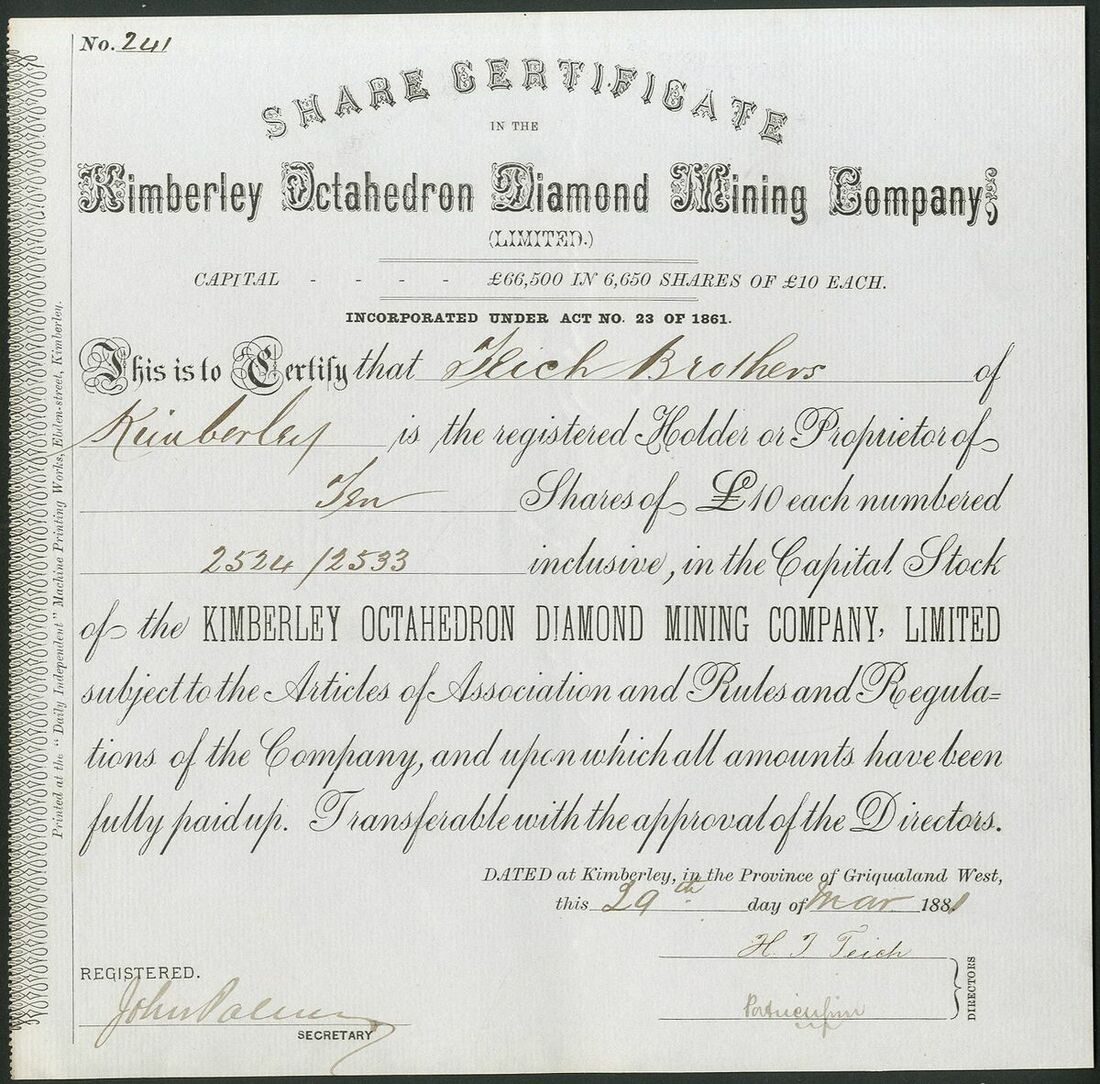 No. 241
SHARE CERTIFICATE
IN THE
Kimberley Octahedron Diamond Mining Company,
(LIMITED.)
CAPITAL - - - - £66,500 IN 6,650 SHARES OF £10 EACH.
INCORPORATED UNDER ACT NO. 23 OF 1861.
This is to Certify that Teich Brothers of
Kimberley is the registered Holder or Proprietor of
Ten Shares of £10 each numbered
2524/2533 inclusive, in the Capital Stock
of the KIMBERLEY OCTAHEDRON DIAMOND MINING COMPANY, LIMITED
subject to the Articles of Association and Rules and Regula=
tions of the Company, and upon which all amounts have been
fully paid up. Transferable with the approval of the Directors.
DATED at Kimberley, in the Province of Griqualand West,
this 29th day of Mar 1881
H. J. Teich
DIRECTORS
REGISTERED.
John Palmer
SECRETARY
Printed at the "Daily Independent" Machine Printing Works, Ebden-street, Kimberley.